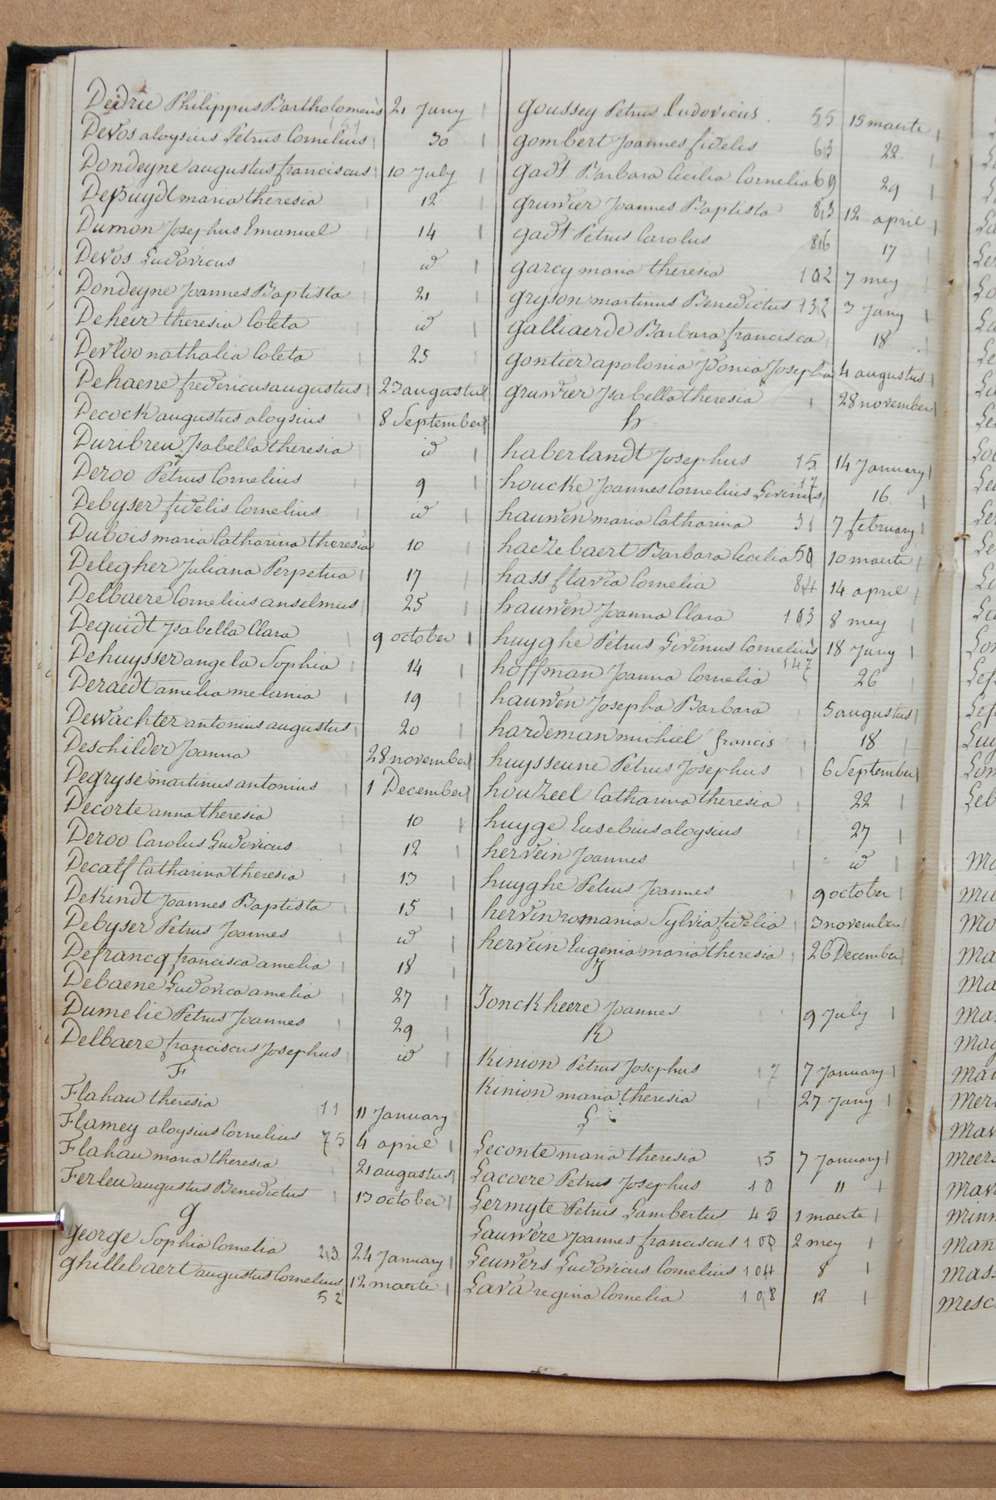 Dedrie Philippus Bartholomeus 21 Juny
Devos aloysius Petrus Cornelius 30
Dondeyne augustus franciscus 10 July
Depuydt maria theresia 12
Dumon Josephus Emanuel 14
Devos Ludovicus id
Dondeyne Joannes Baptista 21
Deheir theresia Coleta id
Devloo nathalia Coleta 25
Dehaene fredericus augustus 23 augustus
Decock augustus aloysius 8 September
Duribreu Isabella theresia id
Deroo Petrus Cornelius 9
Debyser fidelis Cornelius id
Dubois maria Catharina theresia 10
Delegher Juliana Perpetua 17
Delbaere Cornelius anselmus 25
Dequidt Isabella Clara 9 october
Dehuysser angela Sophia 14
Deraedt amelia melania 19
Dewachter antonius augustus 20
Deschilder Joanna 28 november
Degryse martinus antonius 1 December
Decorte anna theresia 10
Deroo Carolus Ludovicus 12
Decalf Catharina theresia 13
Dekindt Joannes Baptista 15
Debyser Petrus Joannes id
Defrancq francisca amelia 18
Debaene Ludovica amelia 27
Dumelie Petrus Joannes 29
Delbaere franciscus Josephus id
F
Flahau theresia 11 11 January
Flamey aloysius Cornelius 75 4 april
Flahau maria theresia 21 augustus
Ferleu augustus Benedictus 13 october
g
george Sophia Cornelia 23 24 January
ghillebaert augustus Cornelius 52 12 maerte
goussey Petrus Ludovicus 55 15 maerte
gombert Joannes fidelis 63 22
gadt Barbara Cecilia Cornelia 69 29
gruwier Joannes Baptista 83 12 april
gadt Petrus Carolus 86 17
garcy maria theresia 102 7 mey
gryson martinus Benedictus 132 3 Juny
galliaerde Barbara francisca 18
gontier apolonia Ponia Josepha 4 augustus
gruwier Isabella theresia 28 november
h
haberlandt Josephus 15 14 January
houcke Joannes Cornelius Livinus 17 16
hauwen maria Catharina 31 7 february
haezebaert Barbara Cecilia 50 10 maerte
hass flavia Cornelia 84 14 april
hauwen Joanna Clara 103 8 mey
huyghe Petrus Livinus Cornelius 18 Juny
hoffman Joanna Cornelia 147 26
hauwen Josepha Barbara 5 augustus
hardeman michiel francis 18
huysseune Petrus Josephus 6 September
houzeel Catharina theresia 22
huyge Eusebius aloysius 27
hervein Joannes id
huyghe Petrus Joannes 9 october
hervin romania Sylvia fidelia 3 november
hervein Eugenia maria theresia 26 December
J
Jonckheere Joannes 9 July
K
Kinion Petrus Josephus 7 7 January
Kinion maria theresia 27 Juny
L
Leconte maria theresia 5 7 January
Lacoere Petrus Josephus 10 11
Lermyte Petrus Lambertus 45 1 maerte
Lauwere Joannes franciscus 100 2 mey
Leuwers Ludovicus Cornelius 104 8
Lava regina Cornelia 108 12